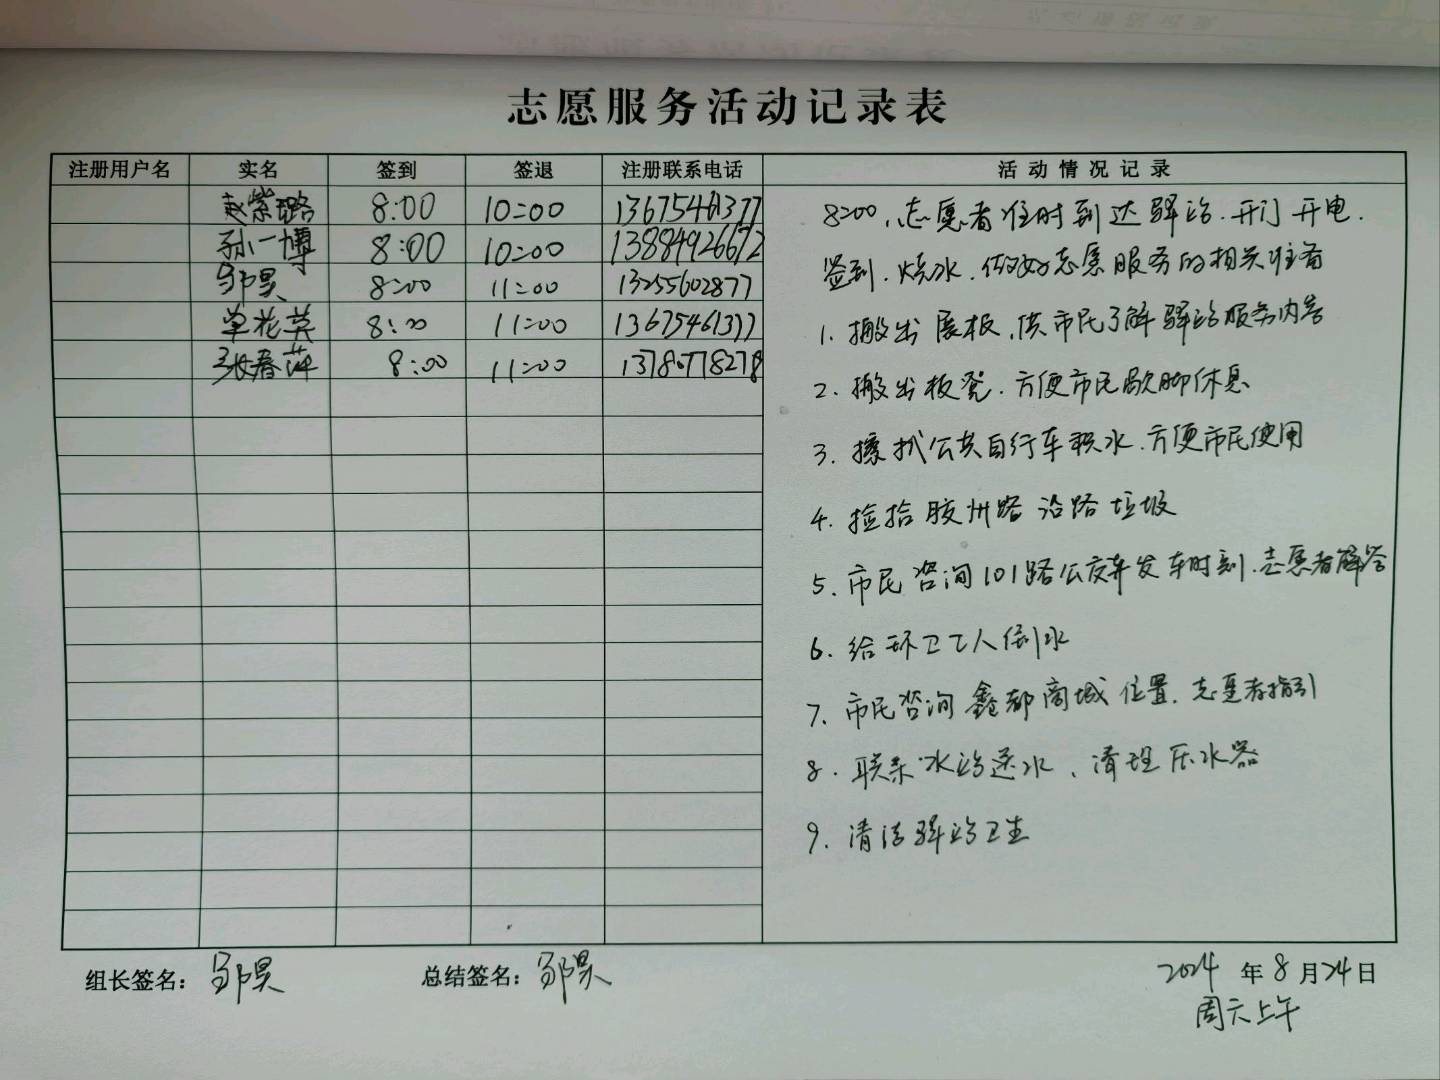 志愿服务活动记录表
注册用户名 实名 签到 签退 注册联系电话 活动情况记录
赵紫璐 8:00 10:00 13675461377
孙一博 8:00 10:00 13884926672
邹昊 8:00 11:00 13255602877
单花英 8:00 11:00 13675461377
张春萍 8:00 11:00 13780778278
8:00,志愿者准时到达驿站.开门开电.
签到.烧水.做好志愿服务的相关准备
1.搬出展板,供市民了解驿站服务内容
2.搬出板凳.方便市民歇脚休息
3.擦扒公共自行车积水.方便市民使用
4.捡拾胶州路沿路垃圾
5.市民咨询101路公交车发车时刻.志愿者解答
6.给环卫工人倒水
7.市民咨询鑫都商城位置.志愿者指引
8.联系水站送水、清理压水器
9.清洁驿站卫生
组长签名:邹昊 总结签名:邹昊 2024年8月24日
周六上午